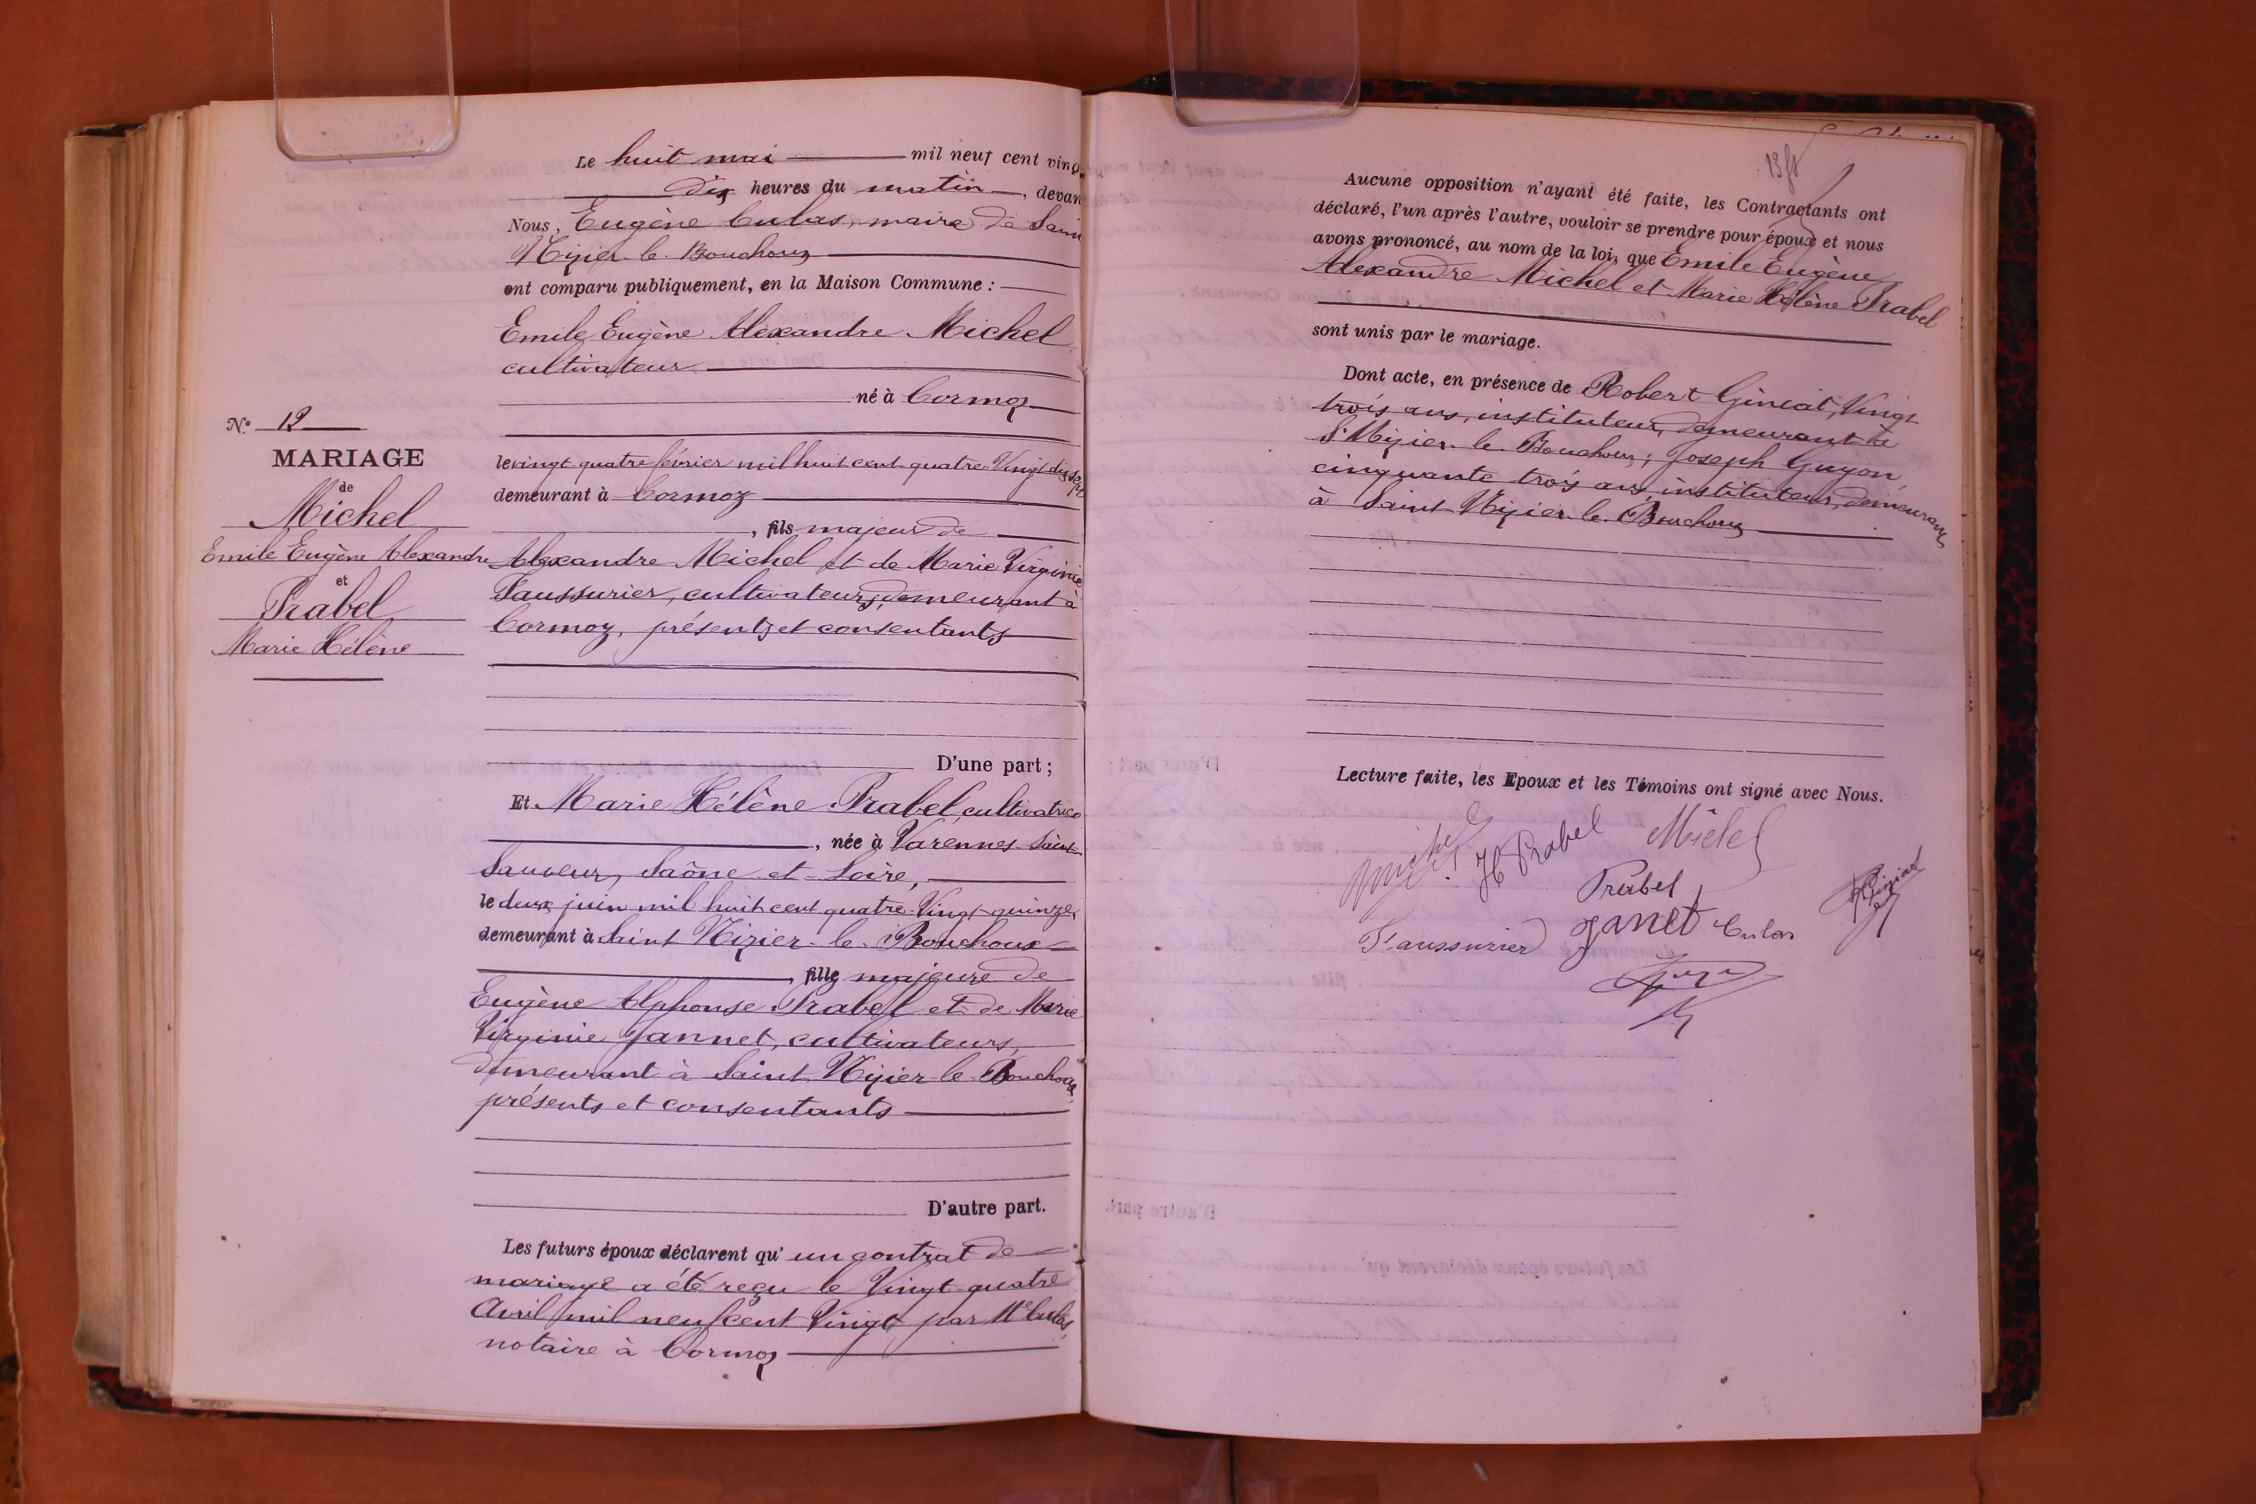 Le huit mai mil neuf cent ving
dix heures du matin, devan
Nous, Eugène Culas, maire de Sain
Nizier-le-Bouchoux
ont comparu publiquement, en la Maison Commune :
Emile Eugène Alexandre Michel
cultivateur
né à Cormoz
le vingt quatre février mil huit cent quatre-Vingt dix sept
demeurant à Cormoz
, fils majeur de
Alexandre Michel et de Marie Virginie
Faussurier, cultivateurs, demeurant à
Cormoz, présents et consentants
D'une part ;
N.º 12
MARIAGE
de
Michel
Emile Eugène Alexandre
et
Prabel
Marie Hélène
Et Marie Hélène Prabel, cultivatrice
, née à Varennes-Saint-
Sauveur, Saône-et-Loire,
le deux juin mil huit cent quatre-Vingt-quinze,
demeurant à Saint Nizier-le-Bouchoux
, fille majeure de
Eugène Alphonse Prabel et de Marie
Virginie Jannet, cultivateurs,
demeurant à Saint Nizier-le-Bouchoux,
présents et consentants
D'autre part.
Les futurs époux déclarent qu' un contrat de
mariage a été reçu le Vingt-quatre
Avril mil neuf cent Vingt par Me Culas,
notaire à Cormoz
Aucune opposition n'ayant été faite, les Contractants ont
déclaré, l'un après l'autre, vouloir se prendre pour époux et nous
avons prononcé, au nom de la loi, que Emile Eugène
Alexandre Michel et Marie Hélène Prabel
sont unis par le mariage.
Dont acte, en présence de Robert Giniat, Vingt
trois ans, instituteur, demeurant à
St Nizier-le-Bouchoux ; Joseph Guyon,
cinquante trois ans, instituteur, demeurant
à Saint Nizier-le-Bouchoux
Lecture faite, les Epoux et les Témoins ont signé avec Nous.
Michel H Prabel Michel
Prabel Giniat
Faussurier Janet Culas